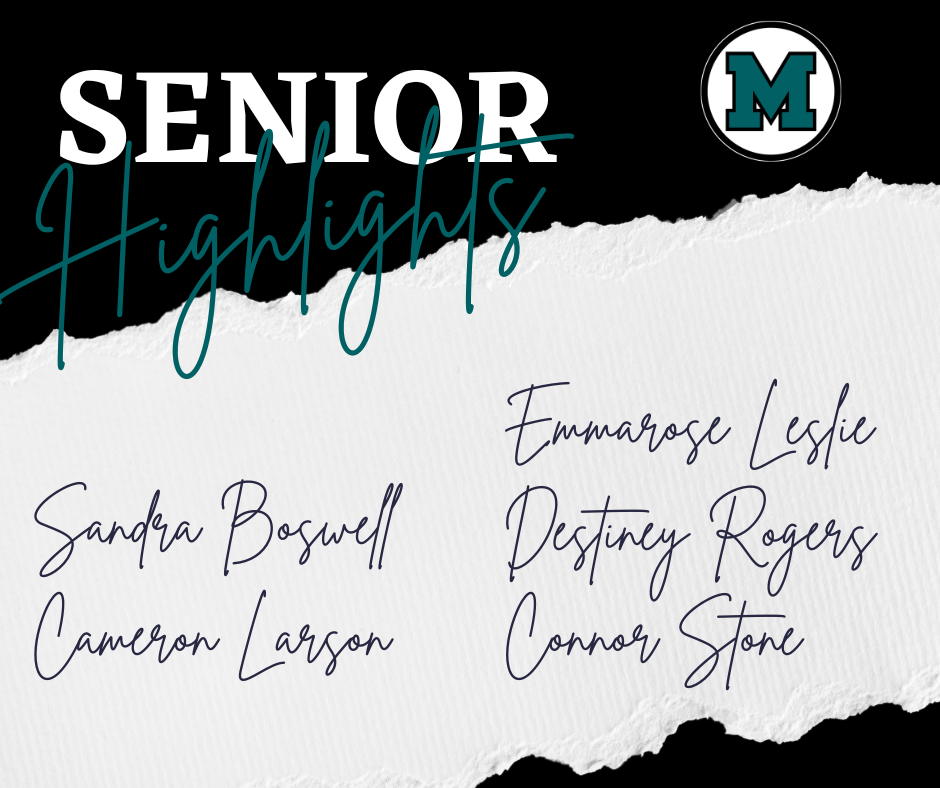 SENIOR
Highlights
M
Sandra Boswell
Cameron Larson
Emmarose Leslie
Destiney Rogers
Connor Stone